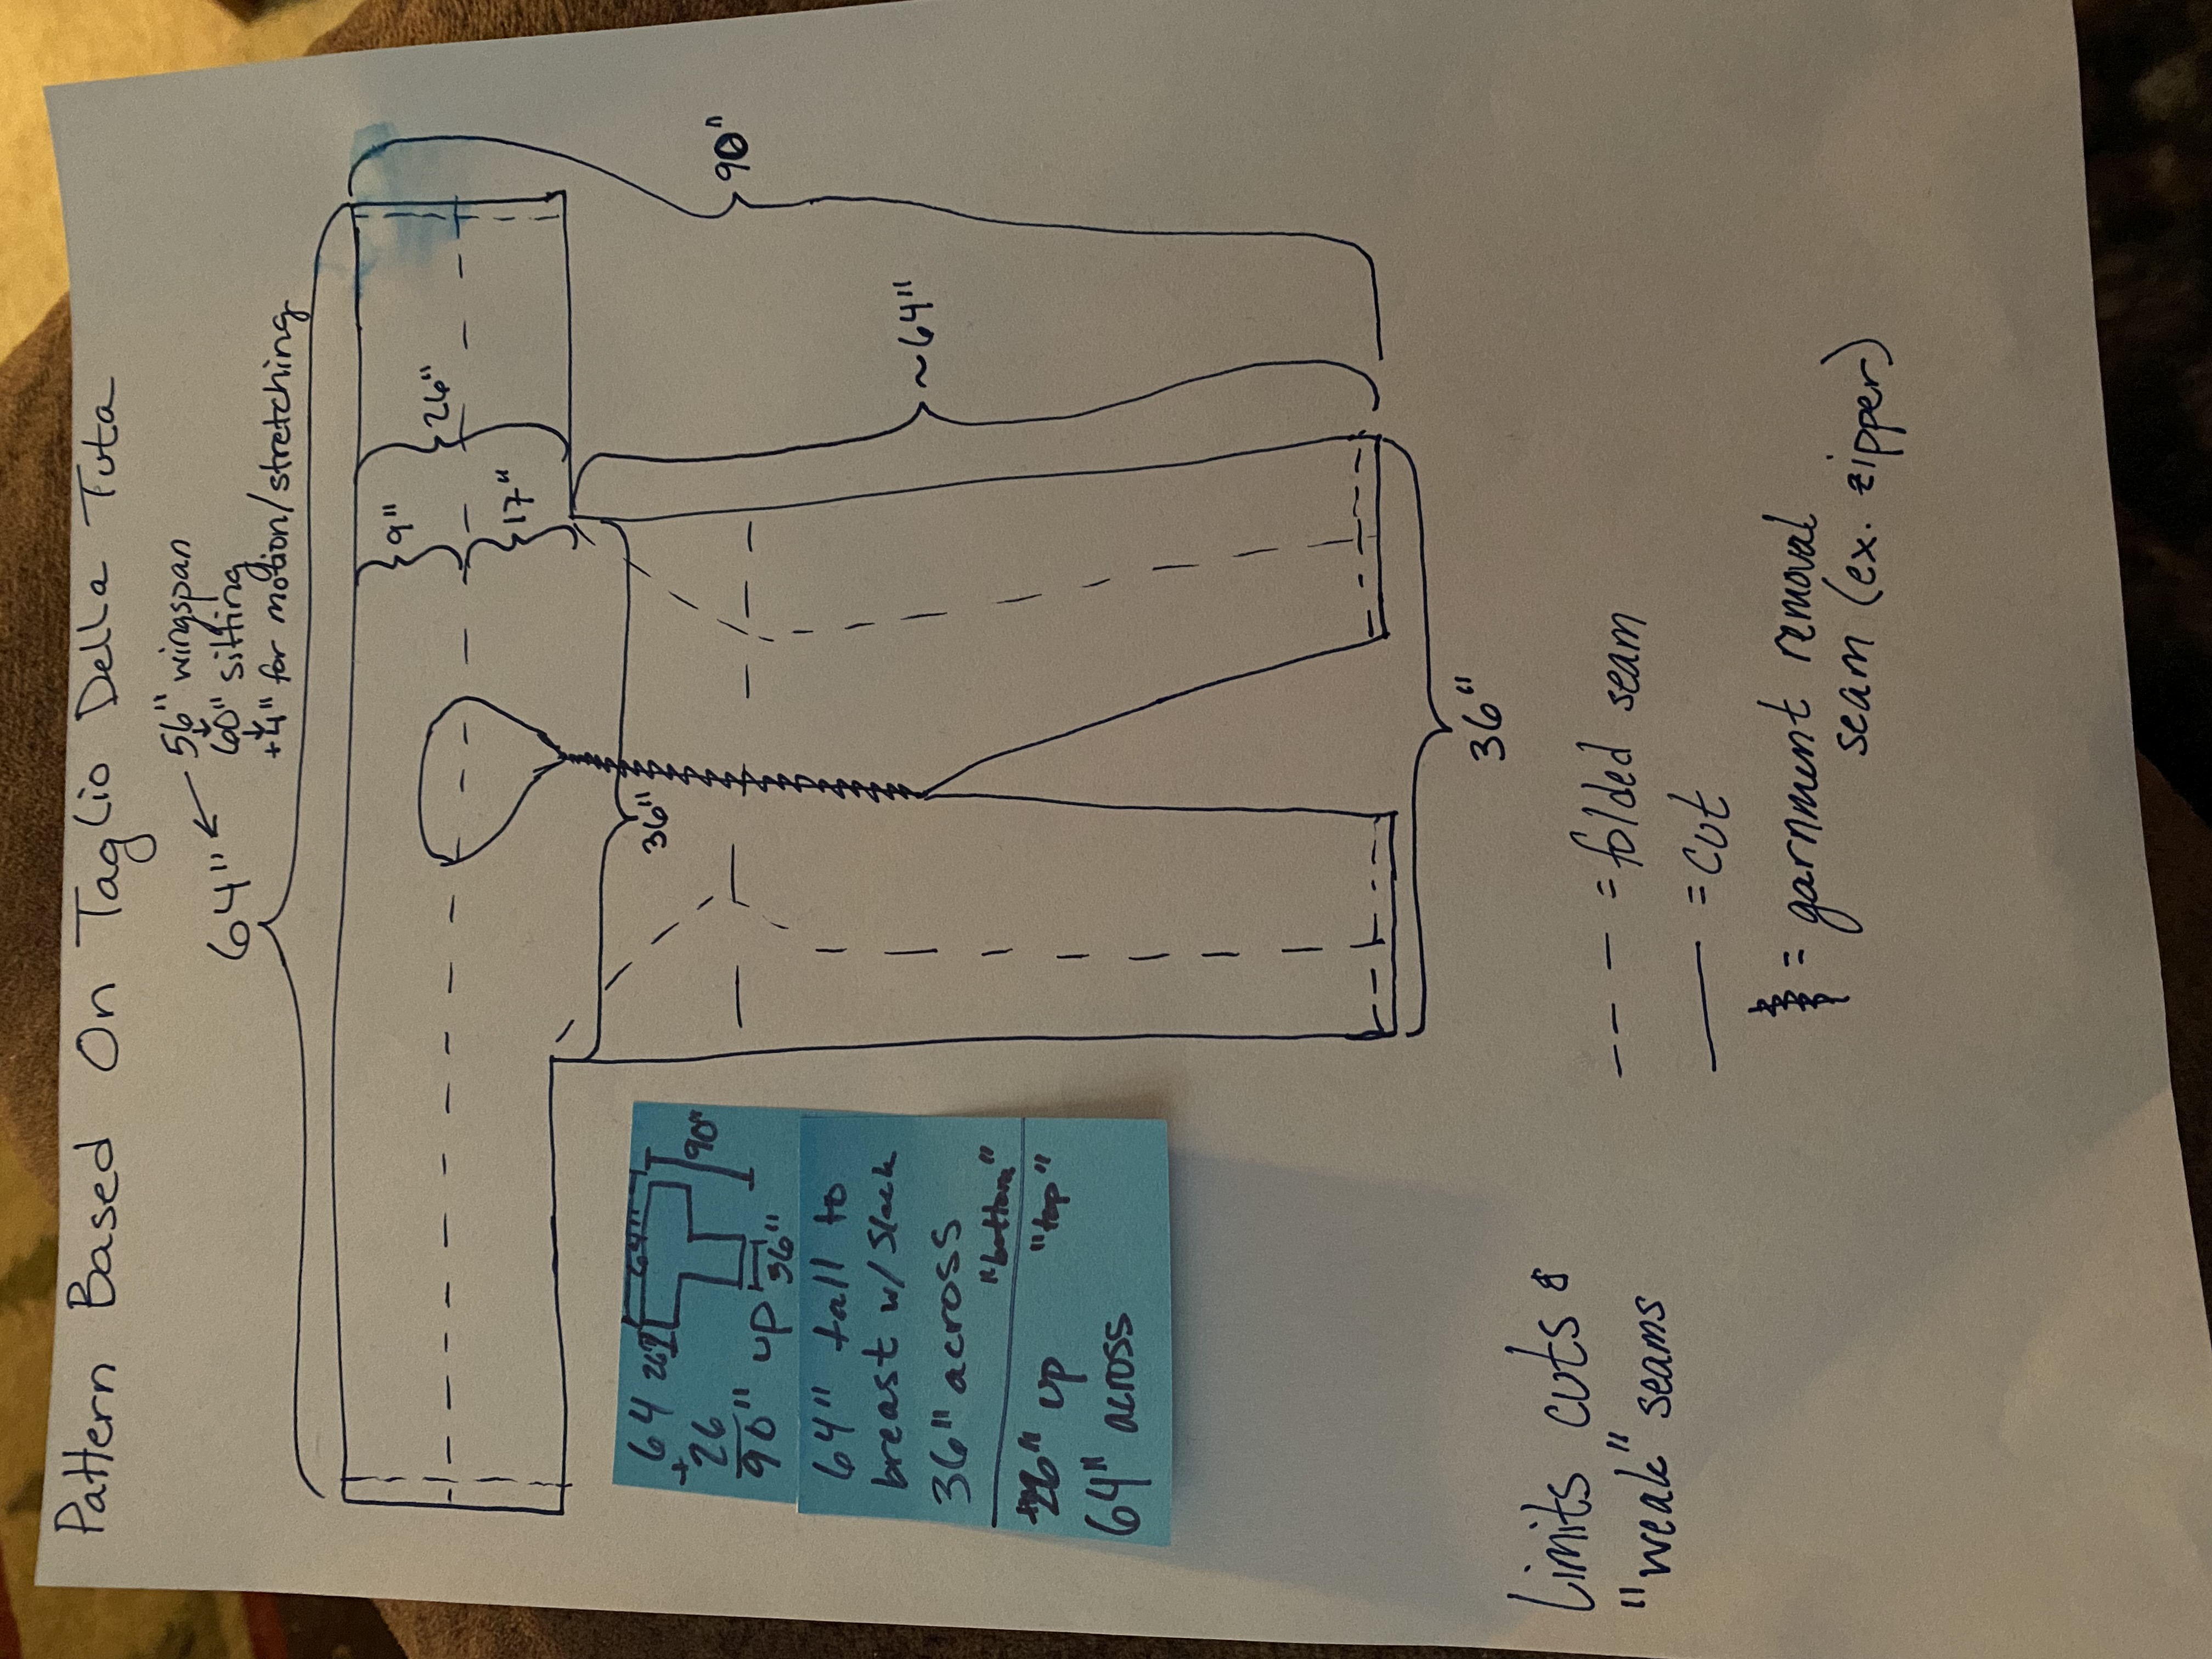 Pattern Based On Taglio Della Tuta
64" ← 56" wingspan
60" sitting
+4" for motion/stretching
26"
9"
17"
90"
~64"
36"
36"
64
+26
90" up
64"
26"
90"
36"
64" tall to
breast w/ slack
36" across
"bottom"
26" up
"top"
64" across
Limits cuts &
"weak" seams
--- = folded seam
— = cut
= garnment removal
seam (ex. zipper)